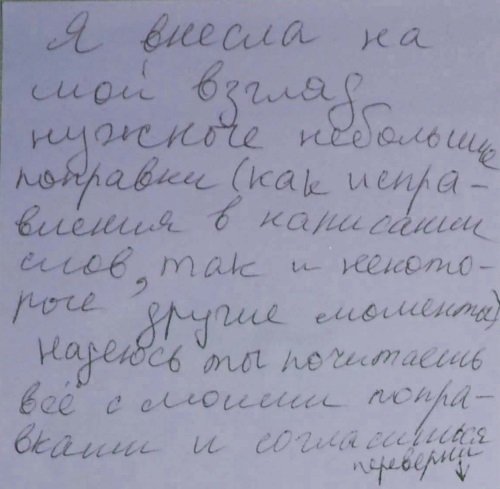 Я внесла на
мой взгляд
нужные небольшие
поправки (как испра-
вления в написании
слов, так и некото-
рые другие моменты)
Надеюсь ты почитаешь
всё с моими попра-
вками и согласишься
переверни ↓